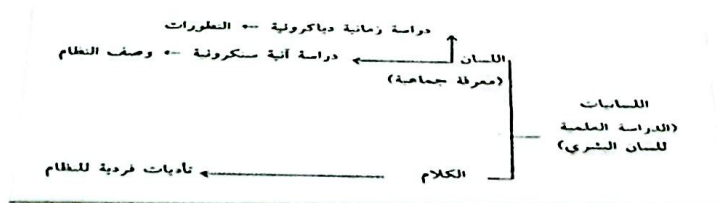 دراسة زمانية دياكرونية ← التطورات
اللسان
دراسة آنية سنكرونية ← وصف النظام
(معرفة جماعية)
اللسانيات
(الدراسة العلمية
للسان البشري)
الكلام
تأديات فردية للنظام